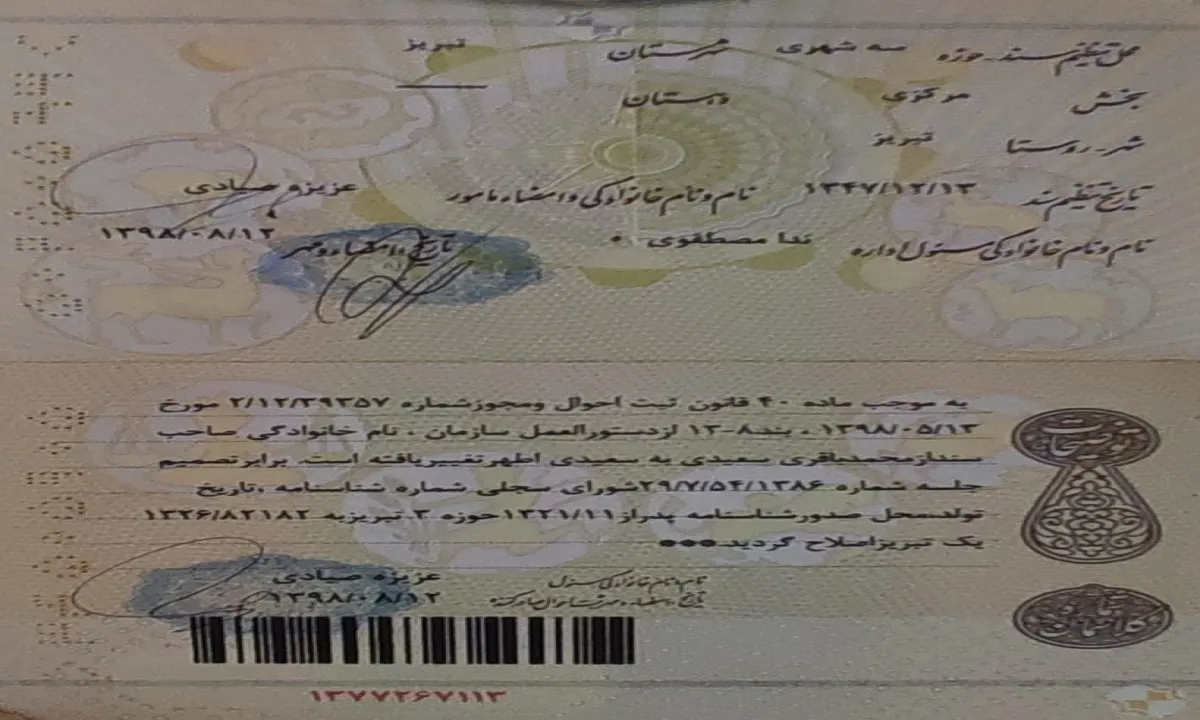 محل تنظیم سند - حوزه سه شهری شهرستان تبریز
بخش مرکزی دهستان
شهر - روستا تبریز
تاریخ تنظیم سند ۱۳۴۷/۱۲/۱۳ نام و نام خانوادگی و امضاء مامور عزیزه صیادی
نام و نام خانوادگی مسئول اداره ندا مصطفوی ۰* تاریخ و امضاء و مهر ۱۳۹۸/۰۸/۱۲
به موجب ماده ۴۰ قانون ثبت احوال ومجوزشماره ۲/۱۲/۳۹۳۵۷ مورخ
۱۳۹۸/۰۵/۱۳ ، بند۸-۱۳ ازدستورالعمل سازمان ، نام خانوادگی صاحب
سندازمحمدباقری سعیدی به سعیدی اطهرتغییریافته است. برابرتصمیم
جلسه شماره ۲۹/۷/۵۴/۱۳۸۶شورای سجلی شماره شناسنامه ،تاریخ
تولد،محل صدورشناسنامه پدراز۱۳۲۱/۱۱حوزه ۳ تبریزبه ۱۳۲۶/۸۲۱۸۲
یک تبریزاصلاح گردید.●●●
توضیحات
نام و نام خانوادگی مسئول عزیزه صیادی
۱۳۹۸/۰۸/۱۲
۱۳۷۷۲۶۷۱۱۳